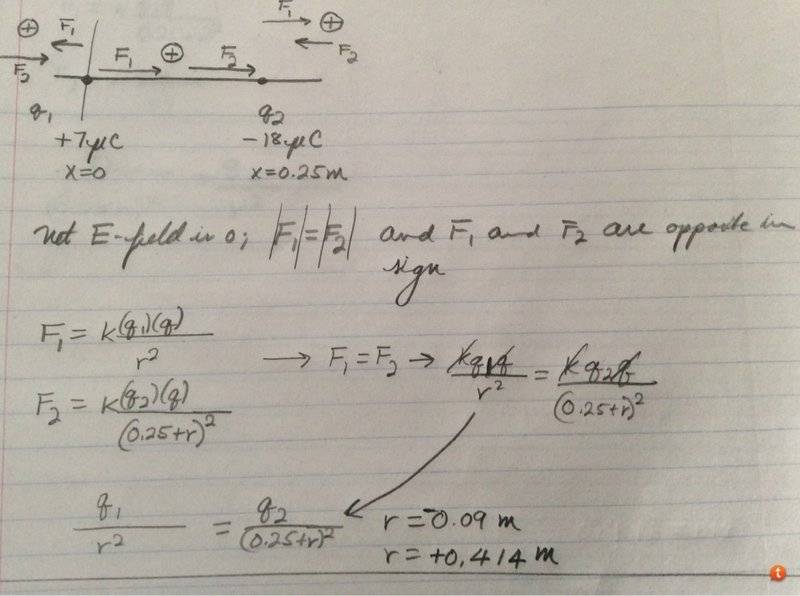 ⊕ F₁ F₂ F₁ ⊕ F₂ F₁ ⊕ F₂
q₁ q₂
+7μC -18μC
x=0 x=0.25m
Net E-field is 0; |F₁|=|F₂| and F₁ and F₂ are opposite in
sign
F₁ = k(q₁)(q)/r² → F₁ = F₂ → kq₁q/r² = kq₂q/(0.25+r)²
F₂ = k(q₂)(q)/(0.25+r)²
q₁/r² = q₂/(0.25+r)² r = -0.09 m
r = +0.414 m
t